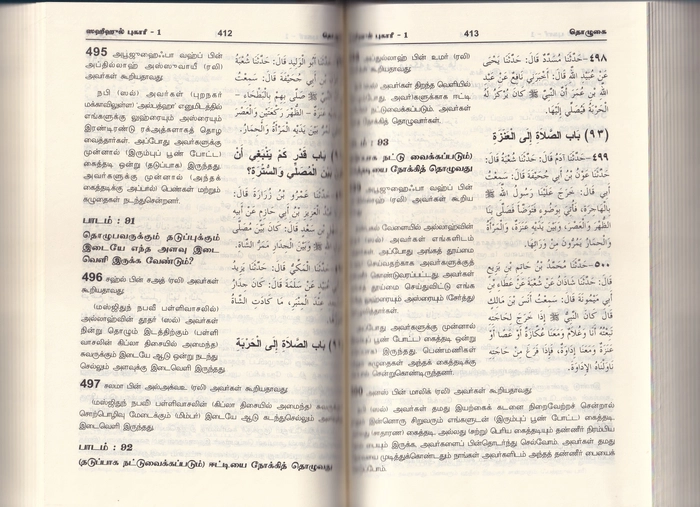 ஸஹீஹுல் புகாரீ - 1
412
495 அபூஜுஹைஃபா வஹ்ப் பின்
அப்தில்லாஹ் அஸ்ஸுவாயீ (ரலி)
அவர்கள் கூறியதாவது:
நபி (ஸல்) அவர்கள் (புறநகர்
மக்காவிலுள்ள) அல்பத்ஹா எனுமிடத்தில்
எங்களுக்கு லுஹ்ரையும் அஸ்ரையும்
இரண்டிரண்டு ரக்அத்களாகத் தொழ
வைத்தார்கள். அப்போது அவர்களுக்கு
முன்னால் (இரும்புப் பூண் போட்ட)
கைத்தடி ஒன்று (தடுப்பாக) இருந்தது.
அவர்களுக்கு முன்னால் (அந்தக்
கைத்தடிக்கு அப்பால்) பெண்கள் மற்றும்
கழுதைகள் நடந்துசென்றன.
பாடம் : 91
தொழுபவருக்கும் தடுப்புக்கும்
இடையே எந்த அளவு இடை
வெளி இருக்க வேண்டும்?
496 சஹ்ல் பின் சஅத் (ரலி) அவர்கள்
கூறியதாவது:
(மஸ்ஜிதுந் நபவீ பள்ளிவாசலில்)
அல்லாஹ்வின் தூதர் (ஸல்) அவர்கள்
நின்று தொழும் இடத்திற்கும் (பள்ளி
வாசலின் கிப்லா திசையில் அமைந்த)
சுவருக்கும் இடையே ஆடு ஒன்று நடந்து
செல்லும் அளவுக்கு இடைவெளி இருந்தது.
أبو الوليد قال: حَدَّثَنَا شُعْبَةُ
أَبِي جُحَيْفَةَ قَالَ: سَمِعْتُ
ﷺ صَلَّى بِهِمْ بِالْبَطْحَاءِ -
عَنَزَةٌ - الظُّهْرَ رَكْعَتَيْنِ وَالْعَصْرَ
بَيْنَ يَدَيْهِ الْمَرْأَةُ وَالْحِمَارُ.
بَابُ قَدْرِ كَمْ يَنْبَغِي أَنْ
بَيْنَ الْمُصَلِّي وَالسُّتْرَةِ؟
عَمْرُو بْنُ زُرَارَةَ قَالَ:
الْعَزِيزِ بْنُ أَبِي حَازِمٍ عَنْ أَبِيهِ
بْنِ سَعْدٍ قَالَ: كَانَ بَيْنَ مُصَلَّى
ﷺ وَبَيْنَ الْجِدَارِ مَمَرُّ الشَّاةِ.
حَدَّثَنَا الْمَكِّيُّ قَالَ: حَدَّثَنَا يَزِيدُ
عَنْ سَلَمَةَ قَالَ: كَانَ جِدَارُ
عِنْدَ الْمِنْبَرِ مَا كَادَتِ الشَّاةُ
بَابُ الصَّلَاةِ إِلَى الْحَرْبَةِ
497 சலமா பின் அல்அக்வஉ (ரலி) அவர்கள் கூறியதாவது:
(மஸ்ஜிதுந் நபவீ பள்ளிவாசலின் (கிப்லா திசையில் அமைந்த)
சொற்பொழிவு மேடைக்கும் (மிம்பர்) இடையே ஆடு கடந்துசெல்லும்
இடைவெளி இருந்தது.
பாடம் : 92
(தடுப்பாக நட்டுவைக்கப்படும்) ஈட்டியை நோக்கித் தொழுவது
புகாரீ - 1
413
தொழுகை
பின் உமர் (ரலி)
கூறியதாவது:
அவர்கள் திறந்த வெளியில்
அவர்களுக்காக ஈட்டி
நட்டுவைக்கப்படும். அவர்கள்
நோக்கித் தொழுவார்கள்.
: 93
நட்டு வைக்கப்படும்)
நோக்கித் தொழுவது
அபூஜுஹைஃபா வஹ்ப் பின்
(ரலி) அவர்கள் கூறிய
வேளையில் அல்லாஹ்வின்
அவர்கள் எங்களிடம்
அப்போது அங்கத் தூய்மை
செய்வதற்காக அவர்களுக்குத்
கொண்டுவரப்பட்டது. அவர்கள்
தூய்மை செய்துவிட்டு எங்க
அஸ்ரையும் (சேர்த்து)
அவர்களுக்கு முன்னால்
பூண் போட்ட) கைத்தடி ஒன்று
இருந்தது. பெண்மணிகள்
கழுதைகள் அந்தக் கைத்தடிக்கு
சென்றுகொண்டிருந்தனர்.
٤٩٨- حَدَّثَنَا مُسَدَّدٌ قَالَ: حَدَّثَنَا يَحْيَى
عَنْ عُبَيْدِ اللهِ قَالَ: أَخْبَرَنِي نَافِعٌ عَنْ عَبْدِ
اللهِ بْنِ عُمَرَ أَنَّ النَّبِيَّ ﷺ كَانَ يُرْكَزُ لَهُ
الْحَرْبَةُ فَيُصَلِّي إِلَيْهَا.
(٩٣) بَابُ الصَّلَاةِ إِلَى الْعَنَزَةِ
٤٩٩- حَدَّثَنَا آدَمُ قَالَ: حَدَّثَنَا شُعْبَةُ قَالَ:
حَدَّثَنَا عَوْنُ بْنُ أَبِي جُحَيْفَةَ قَالَ: سَمِعْتُ
أَبِي قَالَ: خَرَجَ عَلَيْنَا رَسُولُ اللهِ ﷺ
بِالْهَاجِرَةِ، فَأُتِيَ بِوَضُوءٍ فَتَوَضَّأَ فَصَلَّى بِنَا
الظُّهْرَ وَالْعَصْرَ، وَبَيْنَ يَدَيْهِ عَنَزَةٌ، وَالْمَرْأَةُ
وَالْحِمَارُ يَمُرُّونَ مِنْ وَرَائِهَا.
٥٠٠- حَدَّثَنَا مُحَمَّدُ بْنُ حَاتِمِ بْنِ بَزِيعٍ
قَالَ: حَدَّثَنَا شَاذَانُ عَنْ شُعْبَةَ عَنْ عَطَاءِ بْنِ
أَبِي مَيْمُونَةَ قَالَ: سَمِعْتُ أَنَسَ بْنَ مَالِكٍ
قَالَ: كَانَ النَّبِيُّ ﷺ إِذَا خَرَجَ لِحَاجَتِهِ
تَبِعْتُهُ أَنَا وَغُلَامٌ وَمَعَنَا عُكَّازَةٌ أَوْ عَصًا أَوْ
عَنَزَةٌ وَمَعَنَا إِدَاوَةٌ، فَإِذَا فَرَغَ مِنْ حَاجَتِهِ
نَاوَلْنَاهُ الْإِدَاوَةَ.
அனஸ் பின் மாலிக் (ரலி) அவர்கள் கூறியதாவது:
(ஸல்) அவர்கள் தமது இயற்கைக் கடனை நிறைவேற்றச் சென்றால்
இன்னொரு சிறுவரும் எங்களுடன் (இரும்புப் பூண் போட்ட) கைத்தடி,
(சாதாரண) கைத்தடி, அல்லது (சற்று) பெரிய கைத்தடியும் தண்ணீர் நிரம்பிய
இருக்க அவர்களைப் பின்தொடர்ந்து செல்வோம். அவர்கள் தமது
முடித்துக்கொண்டதும் நாங்கள் அவர்களிடம் அந்தத் தண்ணீர் பையைக்